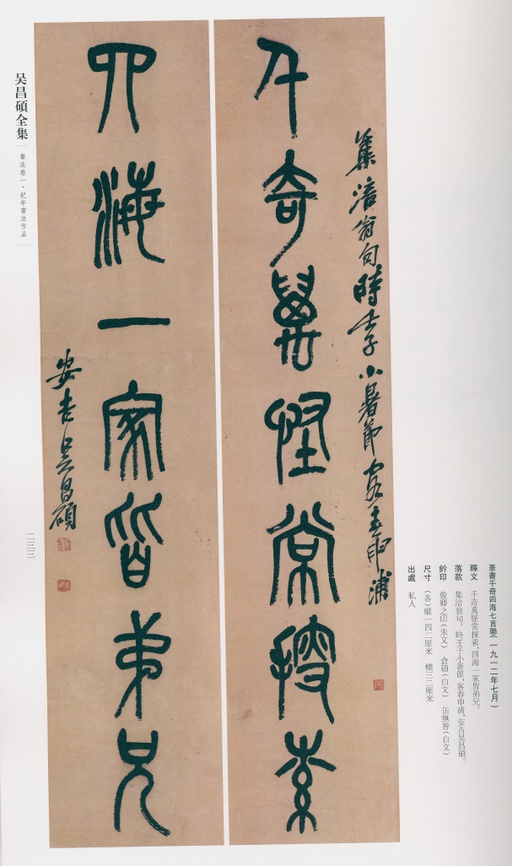 千奇萬怪常搜索
集涪翁句時壬子小暑節客春申浦
四海一家皆弟兄
安吉吳昌碩
吴昌碩全集
書法卷一·紀年書法作品
二三三
篆書千奇四海七言聯(一九一二年七月)
釋文 千奇萬怪常探索,四海一家皆弟兄。
落款 集涪翁句。時壬子小暑節,客春申浦,安吉吳昌碩。
鈐印 俊卿之印(朱文) 倉碩(白文) 缶無咎(白文)
尺寸 (各)縱一四二厘米 橫三二厘米
出處 私人